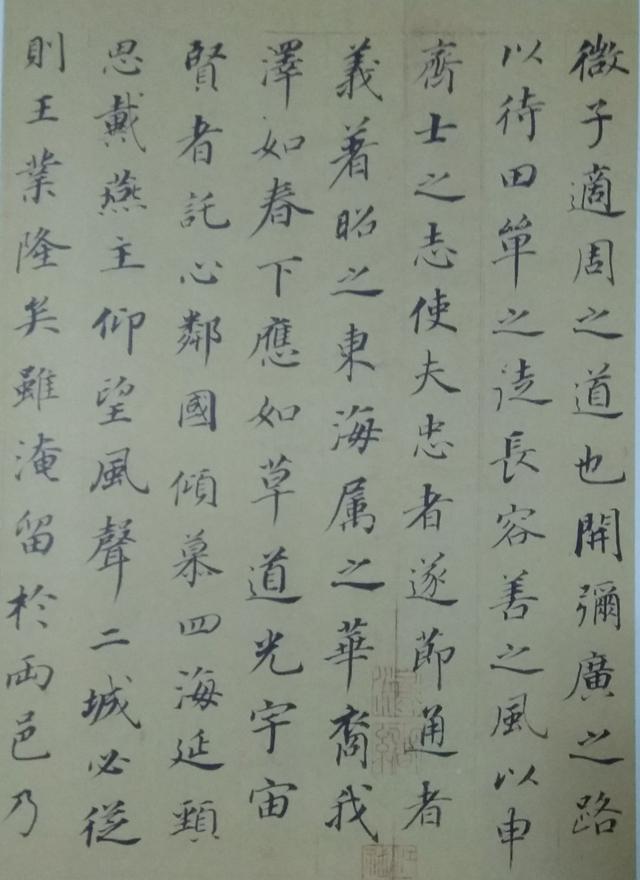 微子適周之道也開彌廣之路
以待田單之徒長容善之風以申
齊士之志使夫忠者遂節通者
義著昭之東海属之華裔我
澤如春下應如草道光宇宙
賢者託心鄰國傾慕四海延頸
思戴燕主仰望風聲二城必從
則王業隆矣雖淹留於兩邑乃